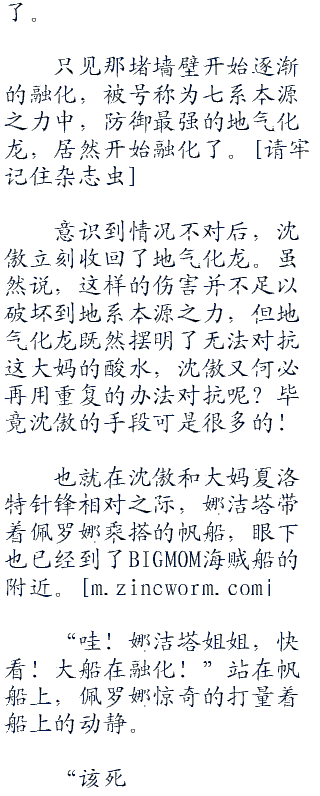 了。
只见那堵墙壁开始逐渐
的融化，被号称为七系本源
之力中，防御最强的地气化
龙，居然开始融化了。[请牢
记住杂志虫]
意识到情况不对后，沈
傲立刻收回了地气化龙。虽
然说，这样的伤害并不足以
破坏到地系本源之力，但地
气化龙既然摆明了无法对抗
这大妈的酸水，沈傲又何必
再用重复的办法对抗呢？毕
竟沈傲的手段可是很多的！
也就在沈傲和大妈夏洛
特针锋相对之际，娜洁塔带
着佩罗娜乘搭的帆船，眼下
也已经到了BIGMOM海贼船的
附近。[m.zincworm.com]
“哇！娜洁塔姐姐，快
看！大船在融化！”站在帆
船上，佩罗娜惊奇的打量着
船上的动静。
“该死